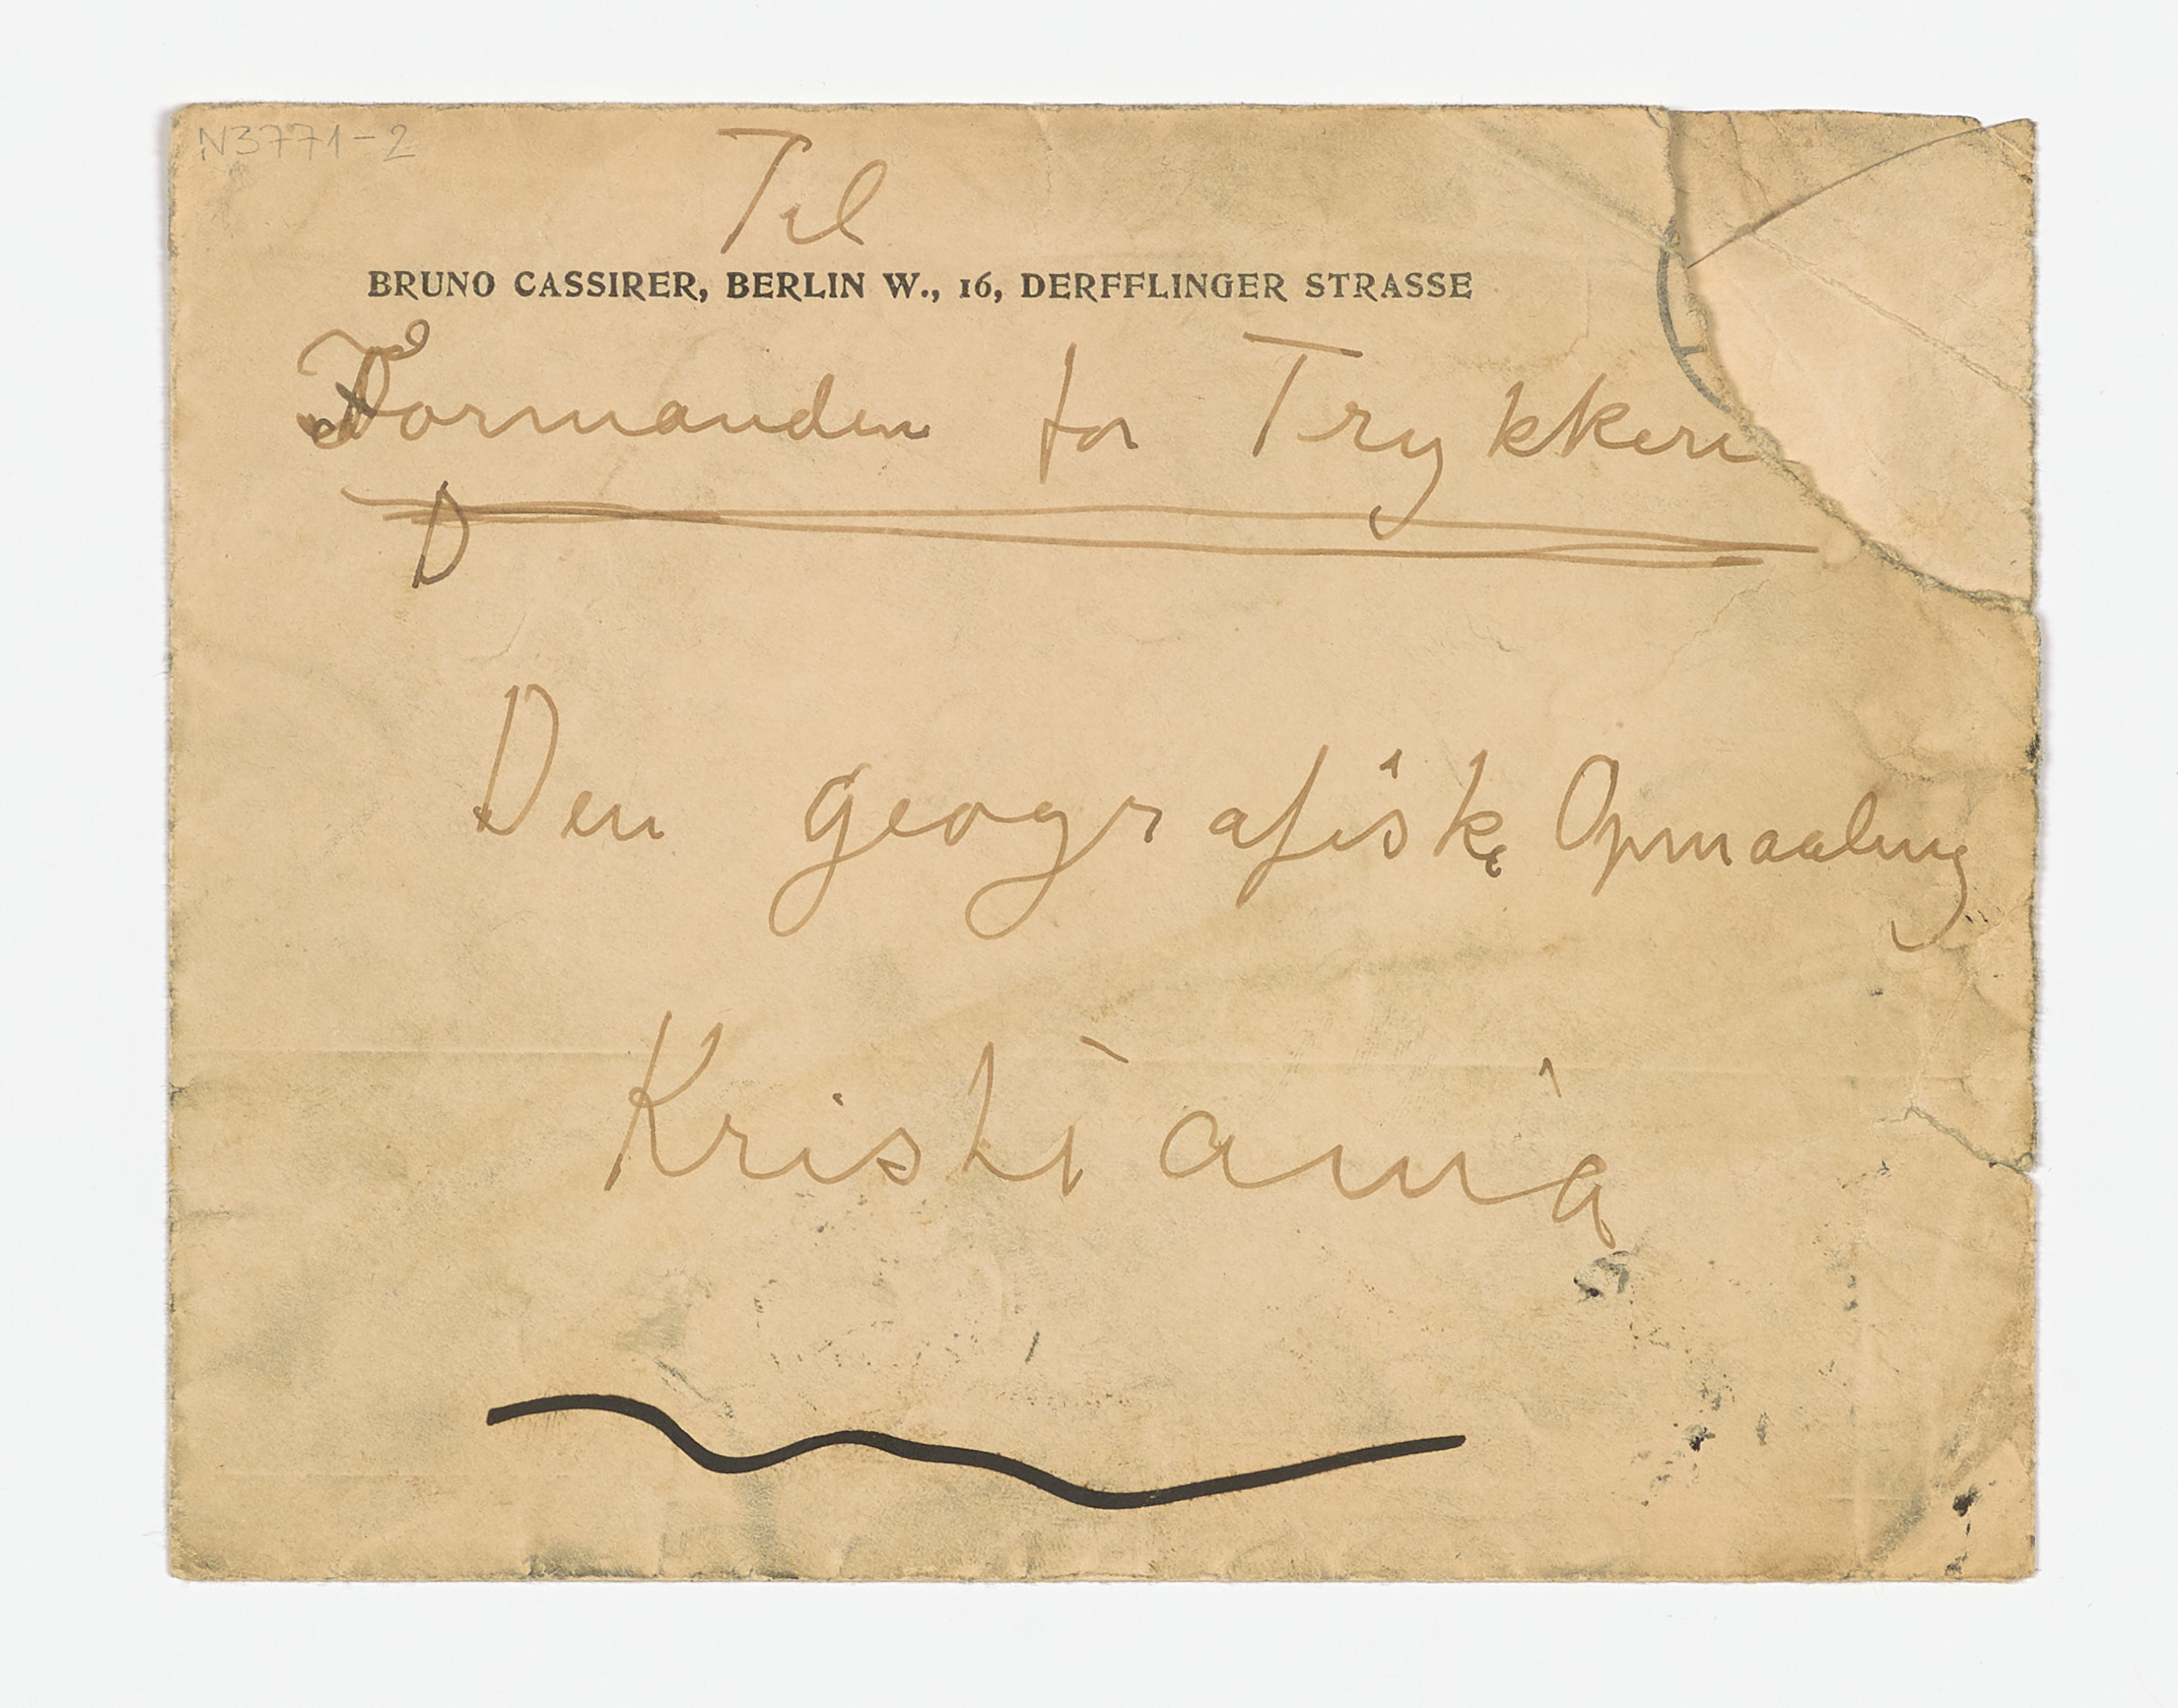 N3771-2
Til
BRUNO CASSIRER, BERLIN W., 16, DERFFLINGER STRASSE
Formanden for Trykkeri
D
Den geografiske Opmaaling
Kristiania